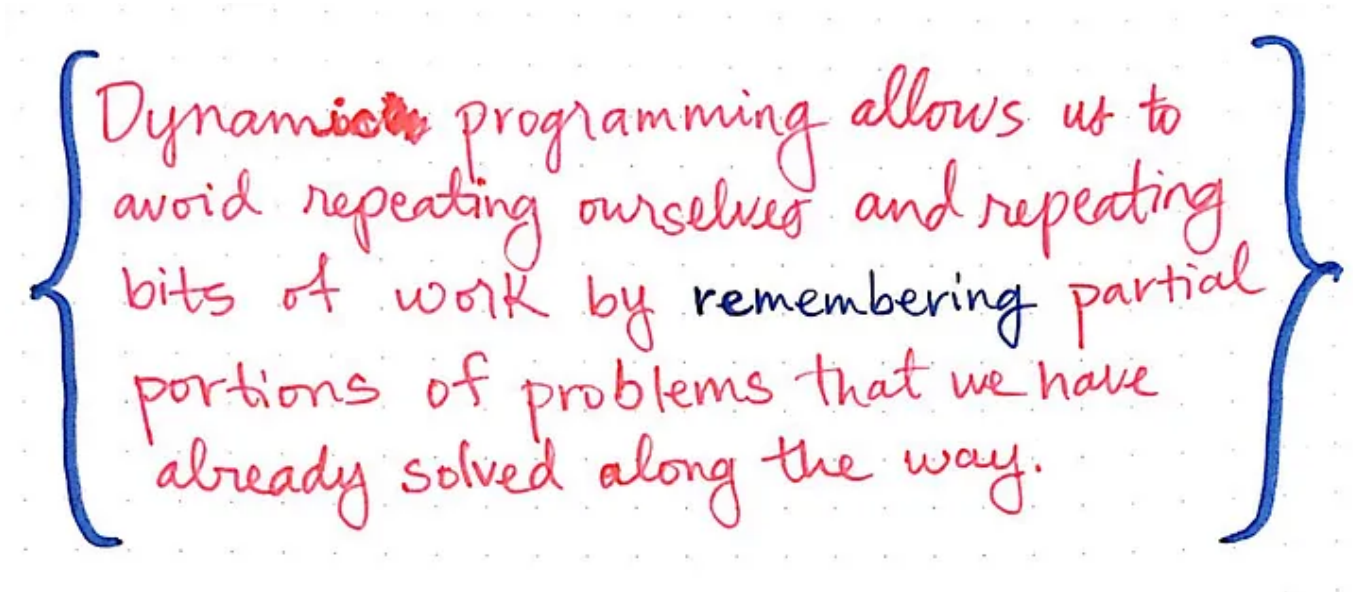 Dynamic programming allows us to
avoid repeating ourselves and repeating
bits of work by remembering partial
portions of problems that we have
already solved along the way.